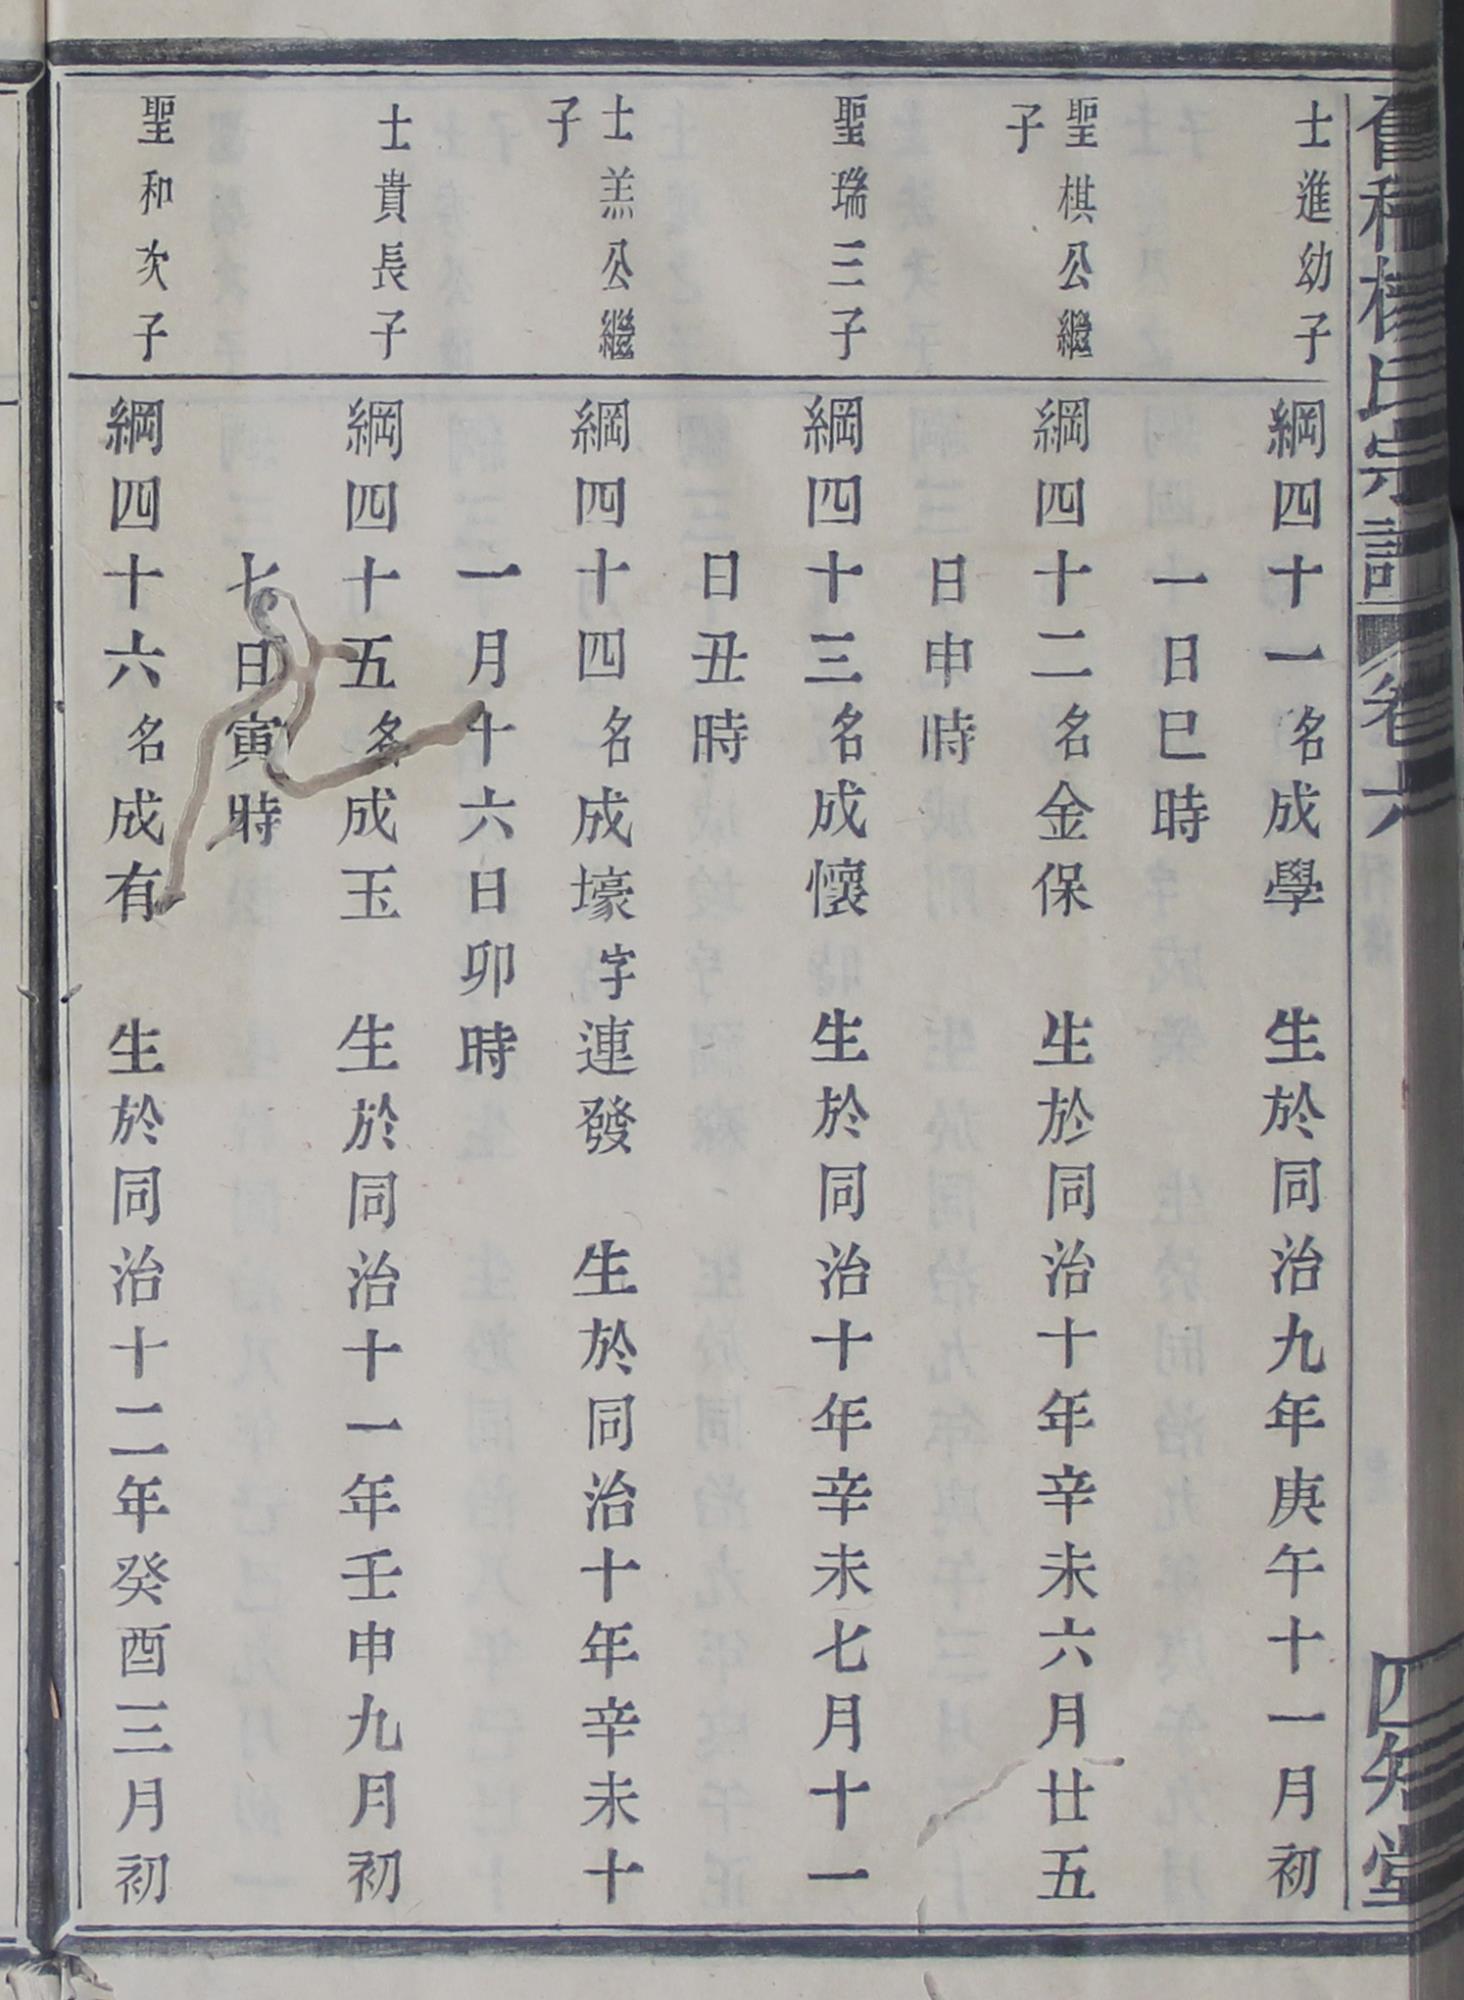 舊和楊氏宗譜 卷六 四知堂
士進幼子
綱四十一名成學 生於同治九年庚午十一月初
一日巳時
聖棋公繼
子
綱四十二名金保 生於同治十年辛未六月廿五
日申時
聖瑞三子
綱四十三名成懷 生於同治十年辛未七月十一
日丑時
士羔公繼
子
綱四十四名成壕字連發 生於同治十年辛未十
一月十六日卯時
士貴長子
綱四十五名成玉 生於同治十一年壬申九月初
七日寅時
聖和次子
綱四十六名成有 生於同治十二年癸酉三月初